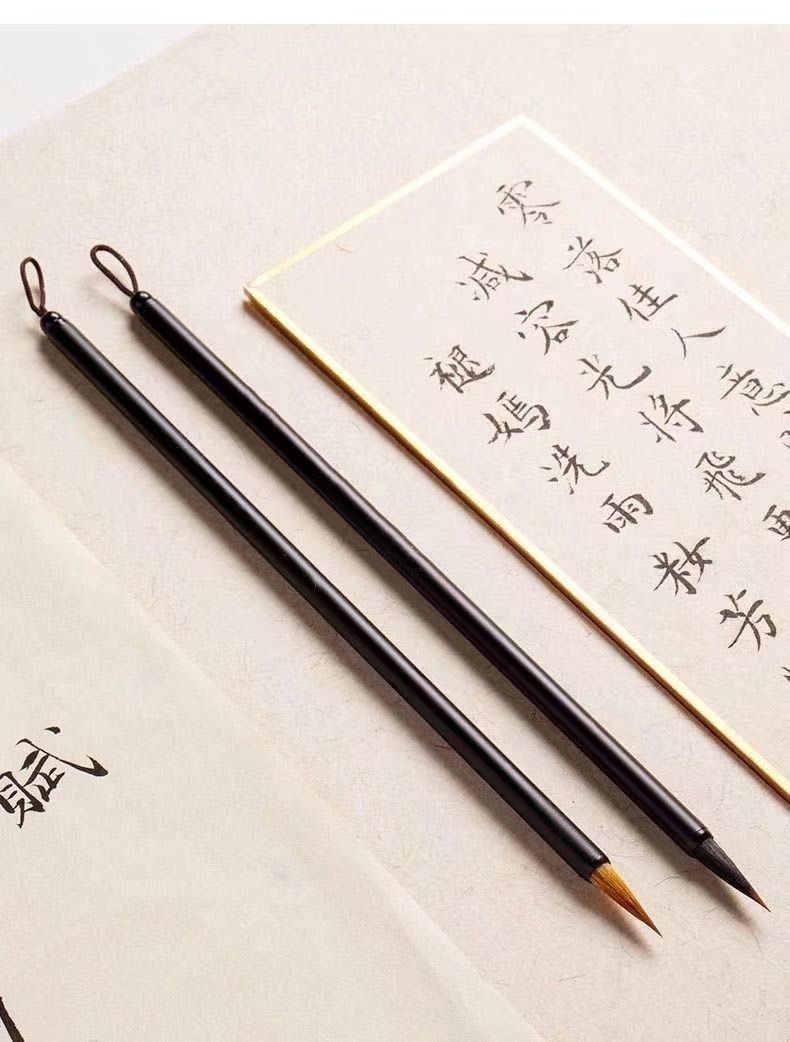 零落佳人意
減容光将飛更
褪嫣洗雨籹芳
賦